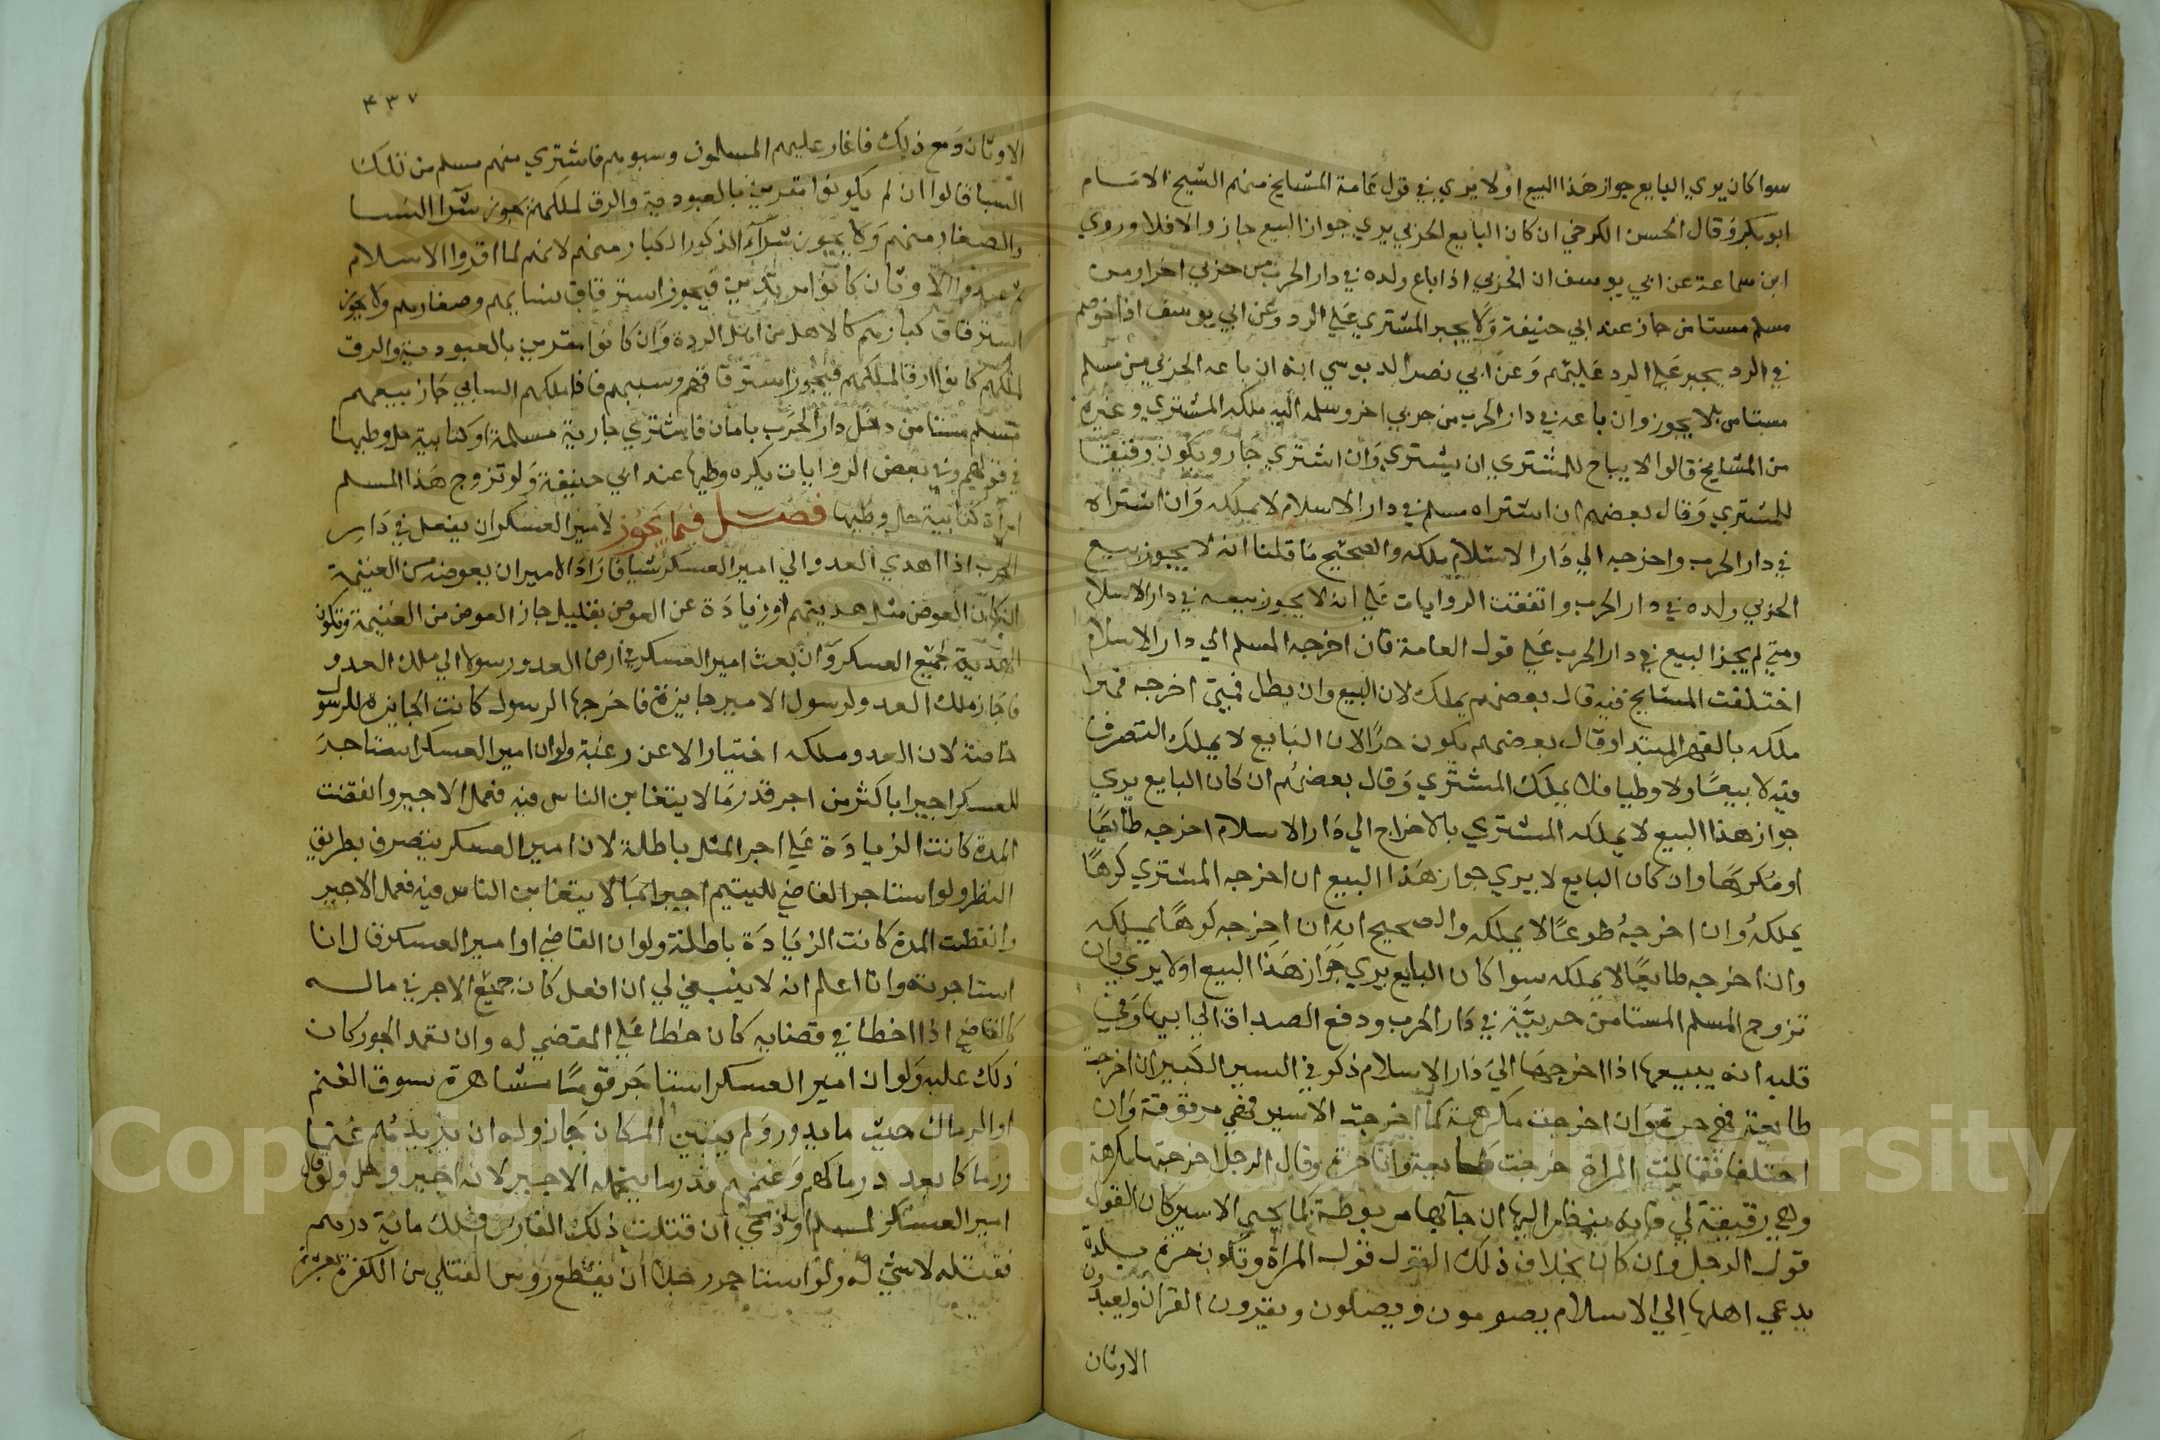 سوا كان يري البايع جواز هذا البيع او لا يري في قول عامة المشايخ منهم الشيخ الامام
ابو بكر وقال الحسن الكرخي ان كان البايع الحربي يري جواز البيع جاز والا فلا وروي
ابن سماعة عن ابي يوسف ان الحربي اذا باع ولده في دار الحرب من حربي اخر او من
مسلم مستامن جاز عند ابي حنيفة ولا يجبر المشتري علي الرد وعن ابي يوسف اذا خوصم
في الرد يجبر علي الرد عليهم وعن ابي نصر الدبوسي انه ان باعه الحربي من مسلم
مستامن لا يجوز وان باعه في دار الحرب من حربي اخر وسلمه اليه ملكه المشتري وغيره
من المشايخ قالوا لا يباح للمشتري ان يشتري وان اشتري جاز ويكون رقيقا
للمشتري وقال بعضهم ان اشتراه مسلم في دار الاسلام لا يملكه وان اشتراه
في دار الحرب واخرجه الي دار الاسلام ملكه والصحيح ما قلنا انه لا يجوز بيع
الحربي ولده في دار الحرب واتفقت الروايات علي انه لا يجوز بيعه في دار الاسلام
ومتي لم يجز البيع في دار الحرب علي قول العامة فان اخرجه المسلم الي دار الاسلام
اختلفت المشايخ فيه قال بعضهم يملك لان البيع وان بطل فمتي اخرجه قهرا
ملكه بالقهر المبتدا وقال بعضهم يكون حرا لان البايع لا يملك التصرف
فيه لا بيعا ولا وطيا فلا يملك المشتري وقال بعضهم ان كان البايع يري
جواز هذا البيع لا يملكه المشتري بالاخراج الي دار الاسلام اخرجه طايعا
او مكرها وان كان البايع لا يري جواز هذا البيع ان اخرجه المشتري كرها
يملكه وان اخرجه طوعا لا يملكه والصحيح انه ان اخرجه كرها يملكه
وان اخرجه طايعا لا يملكه سوا كان البايع يري جواز هذا البيع او لا يري وان
تزوج المسلم المستامن حربية في دار الحرب ودفع الصداق الي ابيها وفي
قلبه انه يبيعها اذا اخرجها الي دار الاسلام ذكر في السير الكبير ان اخرجت
طايعة فهي حرة وان اخرجت مكرهة كما اخرجت الاسير فهي مرقوقة وان
اختلفا فقالت المراة خرجت طايعة وانا حرة وقال الرجل اخرجتها مكرهة
وهي رقيقة لي فانه ينظر اليها ان جآ بها مربوطة كما يجي الاسير كان القول
قول الرجل وان كان بخلاف ذلك القول قول المراة وتكون حرة بلدة
يدعي اهلها الي الاسلام يصومون ويصلون ويقرون القران ويعبدون
الاوثان
٤٣٧
الاوثان ومع ذلك فاغار عليهم المسلمون وسبوهم فاشتري منهم مسلم من تلك
السبا قالوا ان لم يكونوا مقرين بالعبودية والرق لملكهم يجوز شرآ النسا
والصغار منهم ولا يجوز شرآء الذكور الكبار منهم لانهم لما اقروا الاسلام
ثم عبدوا الاوثان كانوا مرتدين فيجوز استرقاق نسايهم وصغارهم ولا يجوز
استرقاق كبارهم كالاهل من اهل الردة وان كانوا مقرين بالعبودية والرق
لملكهم كانوا ارقا لملكهم فيجوز استرقاقهم وسبيهم فاذا ملكهم السابي جاز بيعهم
مسلم مستامن دخل دار الحرب بامان فاشتري جارية مسلمة او كتابية حل وطيها
في قولهم وفي بعض الروايات يكره وطيها عند ابي حنيفة ولو تزوج هذا المسلم
امرأة كتابية حل وطيها فصل فيما يجوز لامير العسكر ان يفعل في دار
الحرب اذا اهدي العدو الي امير العسكر شيا فاراد الامير ان يعوضه من الغنيمة
ان كان العوض مثل هديتهم او زيادة عن العوض بقليل جاز العوض من الغنيمة وتكون
الهدية لجميع العسكر وان بعث امير العسكر في ارض العدو رسولا الي ملك العدو
فاجاز ملك العدو لرسول الامير جايزة فاخرجها الرسول كانت الجايزة للرسول
خاصة لان العدو ملكه اختيارا لا عن رغبة ولو ان امير العسكر استاجر
للعسكر اجيرا باكثر من اجر قدر ما لا يتغابن الناس فيه فعمل الاجير وانقضت
المدة كانت الزيادة علي اجر المثل باطلة لان امير العسكر يتصرف بطريق
النظر ولو استاجر القاضي لليتيم اجيرا بما لا يتغابن الناس فيه فعمل الاجير
وانقضت المدة كانت الزيادة باطلة ولو ان القاضي او امير العسكر قال انا
استاجرته وانا اعلم انه لا ينبغي لي ان افعل كان جميع الاجر في ماله
كالقاضي اذا اخطا في قضايه كان خطا علي المقضي له وان تعمد الجور كان
ذلك عليه ولو ان امير العسكر استاجر قوما مشاهرة بسوق الغنم
او الرماك حيث ما يدور ولم يبين المكان جاز وله ان يزيدهم غنما
ورماكا بعد درماكهم وغنمهم قدر ما يتحمله الاجير لانه اجير وحل ولو قال
امير العسكر لمسلم او ذمي ان قتلت ذلك الفارس فلك ماية درهم
فقتله لا شي له ولو استاجر رجلا ان يقطع روس القتلي من الكفرة بعشرة